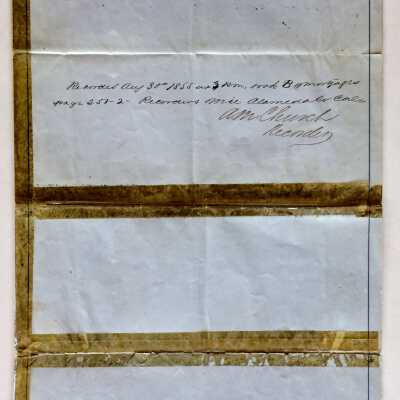 Recorded Aug 30th 1855 at 3 P.m. Book B of Mortgages
page 251-2 Recorders Office Alameda Co. Cala
A M Church
Recorder